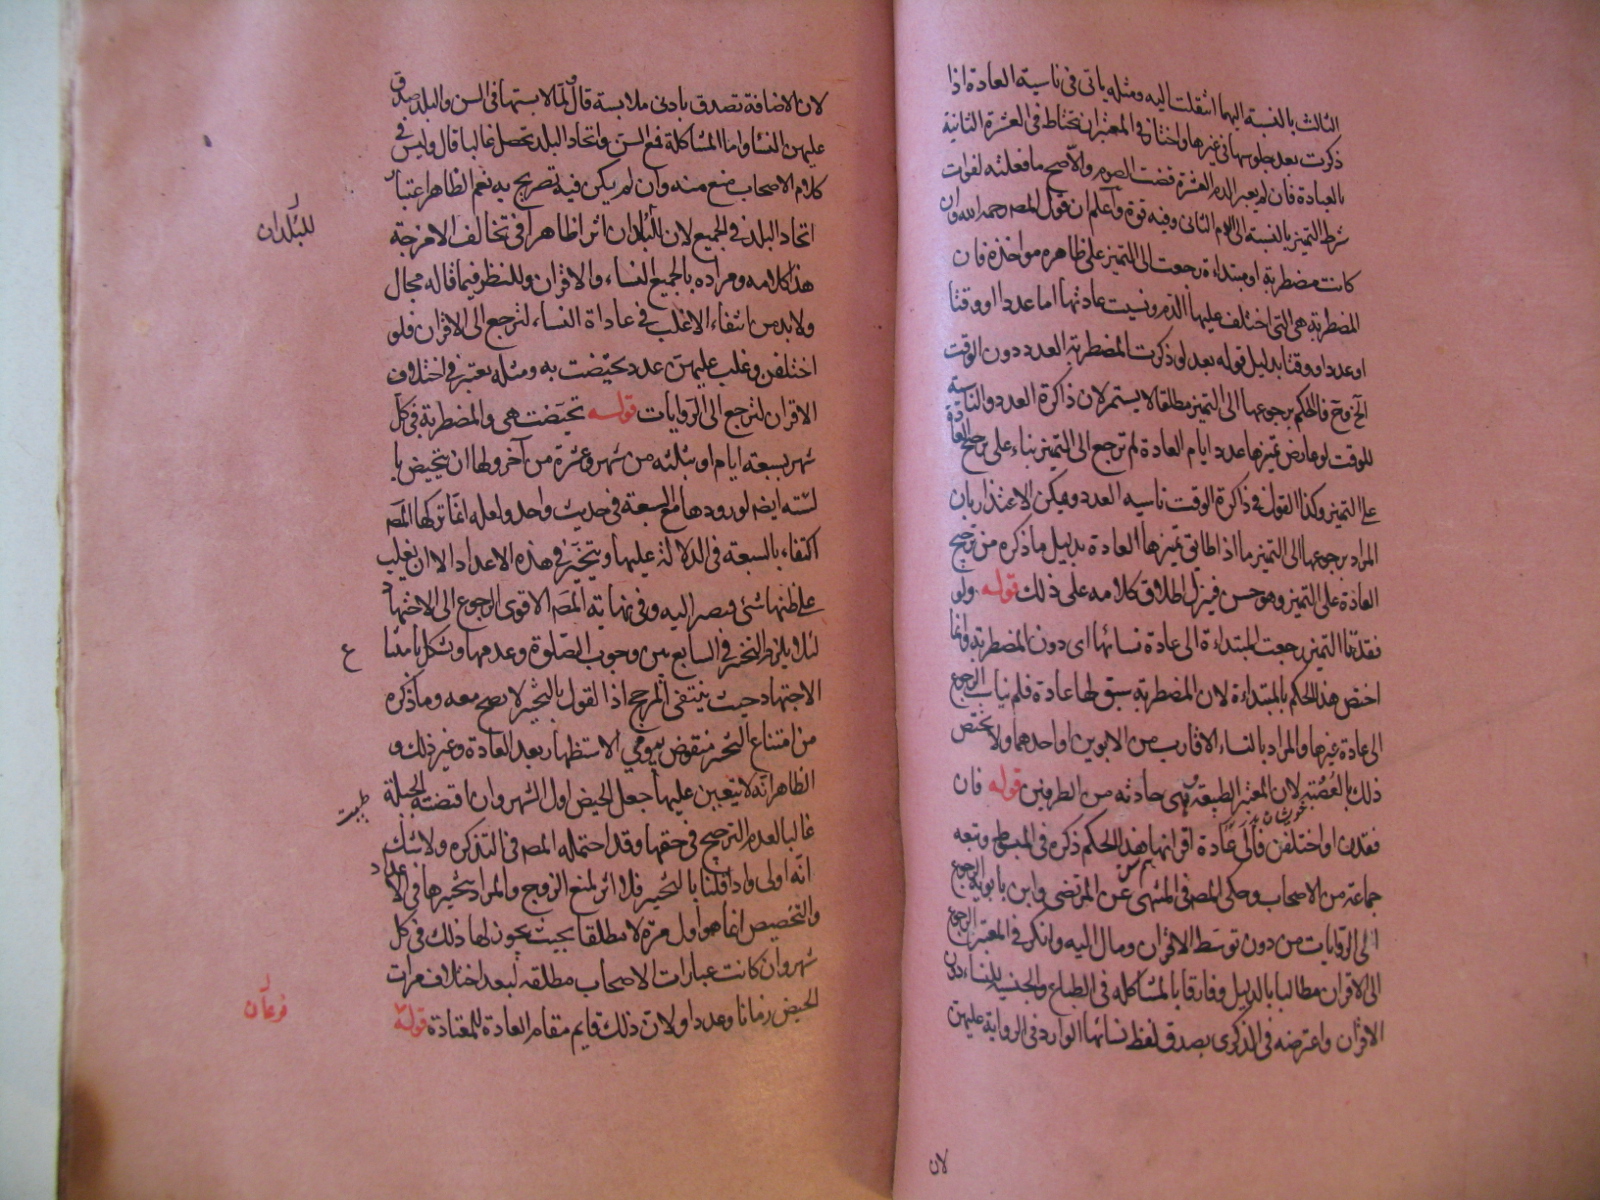 الثالث بالنسبة اليهما انتقلت اليه ومثله ياتى فى ناسية العادة اذا
ذكرت بعد جلوسها فى غيرها واختار فى المعتبر ان تحتاط فى العشرة الثانية
بالعبادة فان لم يعبر الدم العشرة قضت الصوم والاصح ما فعلته لفوات
شرط التميز بالنسبة الى الدم الثانى وفيه قوة واعلم ان قول المصر رحمه الله وان
كانت مضطربة او مبتداءة رجعت الى التميز على ظاهره مواخذة فان
المضطربة هى التى اختلف عليها الدم ونسيت عادتها اما عددا او وقتا
او عددا ووقتا بدليل قوله بعد لو ذكرت المضطربة العدد دون الوقت
الخ وح فالحكم برجوعها الى التميز مطلقا لا يستمر لان ذاكرة العدد الناسية
للوقت لو عارض تميزها عدد ايام العادة لم ترجع الى التميز بناء على ترجيح العادة
على التميز وكذا القول فى ذاكرة الوقت ناسيه العدد ويمكن الاعتذار بان
المراد برجوعها الى التميز ما اذا طابق تميزها العادة بدليل ما ذكره من ترجيح
العادة على التميز وهو حسن فينزل اطلاق كلامه على ذلك قوله ولو
فقدتا التميز رجعت المبتداءة الى عادة نسائها اى دون المضطربة وانما
اختص هذا الحكم بالمبتداءة لان المضطربة سبق لها عادة فلم يناسب الرجوع
الى عادة غيرها والمراد بالنساء الاقارب من الابوين او احدهما ولا يختص
ذلك بالعصبة لان المعتبر الطبيعة وهى حادثه من الطرفين قوله فان
فقدن او اختلفن فالى عادة اقرانها هذا الحكم ذكره فى المبسوط وتبعه
جماعة من الاصحاب وحكى المصر فى المنتهى عن المرتضى وابن بابويه الرجوع
الى الروايات من دون توسط الاقران ومال اليه وانكر فى المعتبر الرجوع
الى الاقران مطالبا بالدليل وفارقا بالمشاكله فى الطباع والجنسية للنساء دون
الاقران واعترضه فى الذكرى بصدق لفظ نسائها الوارد فى الرواية عليهن
لان
لان الاضافة تصدق بادنى ملابسة قال ولما لابستها فى السن والبلد صدق
عليهن النساء واما المشاكلة فمع السن واتحاد البلد تحصل غالبا قال وليس فى
كلام الاصحاب منع منه وان لم يكن فيه تصريح به نعم الظاهر اعتبار
اتحاد البلد فى الجميع لان للبلدان اثرا ظاهرا فى تخالف الامزجة
للبلدان
هذا كلامه ومراده بالجميع النساء والاقران وللنظر فيما قاله مجال
ولا بد من انتفاء الاغلب فى عادات النساء لترجع الى الاقران فلو
اختلفن وغلب عليهن عدد تحيضت به ومثله يعتبر فى اختلاف
الاقران لترجع الى الروايات قوله تحيضت هى والمضطربة فى كل
شهر بسبعة ايام او بثلثه من شهر وعشرة من آخر ولها ان تتحيض با
لستة ايضا لورودها مع السبعة فى حديث واحد ولعله انما تركها المصر
اكتفاء بالسبعة فى الدلالة عليها ويتخير فى هذه الاعداد الا ان يغلب
على ظنها شئ فيصر اليه وفى نهاية المصر الاقوى الرجوع الى الاجتهاد
لئلا يلزم التخير فى السابع بين وجوب الصلوة وعدمها ويشكل بامتنا
ع
الاجتهاد حيث ينتفى المرجح اذا القول بالتخير لا يصح معه وما ذكره
من امتناع التخير منقوض بيومي الاستظهار بعد العادة وغير ذلك و
الظاهر انه لا يتعين عليها جعل الحيض اول الشهر وان اقتضته الجبلة
طبيعت
غالبا لعدم الترجيح فى حقها وقد احتمله المصر فى التذكره ولا شك
انه اولى واذا قلنا بالتخير فلا اثر لمنع الزوج والمراد بتخيرها فى الاعداد
والتخصيص انما هو اول مرة لا مطلقا بحيث يجوز لها ذلك فى كل
شهر وان كانت عبارات الاصحاب مطلقه لبعد اختلاف مرات
الحيض زمانا وعددا ولان ذلك قايم مقام العادة للمعتادة قوله
فرعان